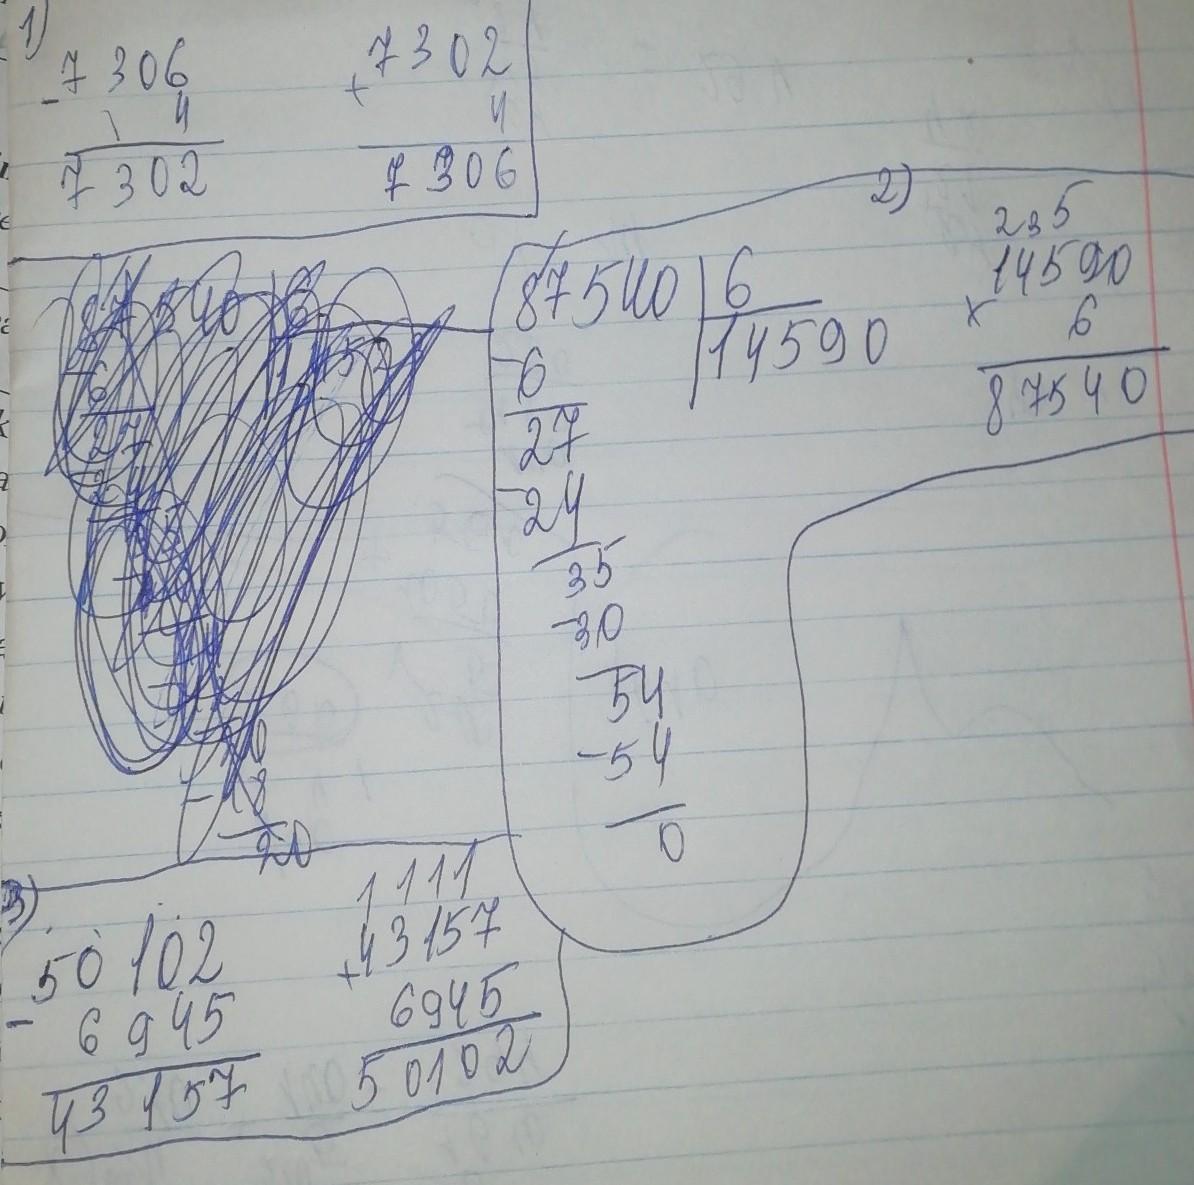 1)
- 7306
4
7302
+ 7302
4
7306
2)
87540 | 6
14590
- 6
27
- 24
35
- 30
54
- 54
0
235
14590
× 6
87540
87540 6
20
3)
- 50102
6945
43157
1111
+ 43157
6945
50102